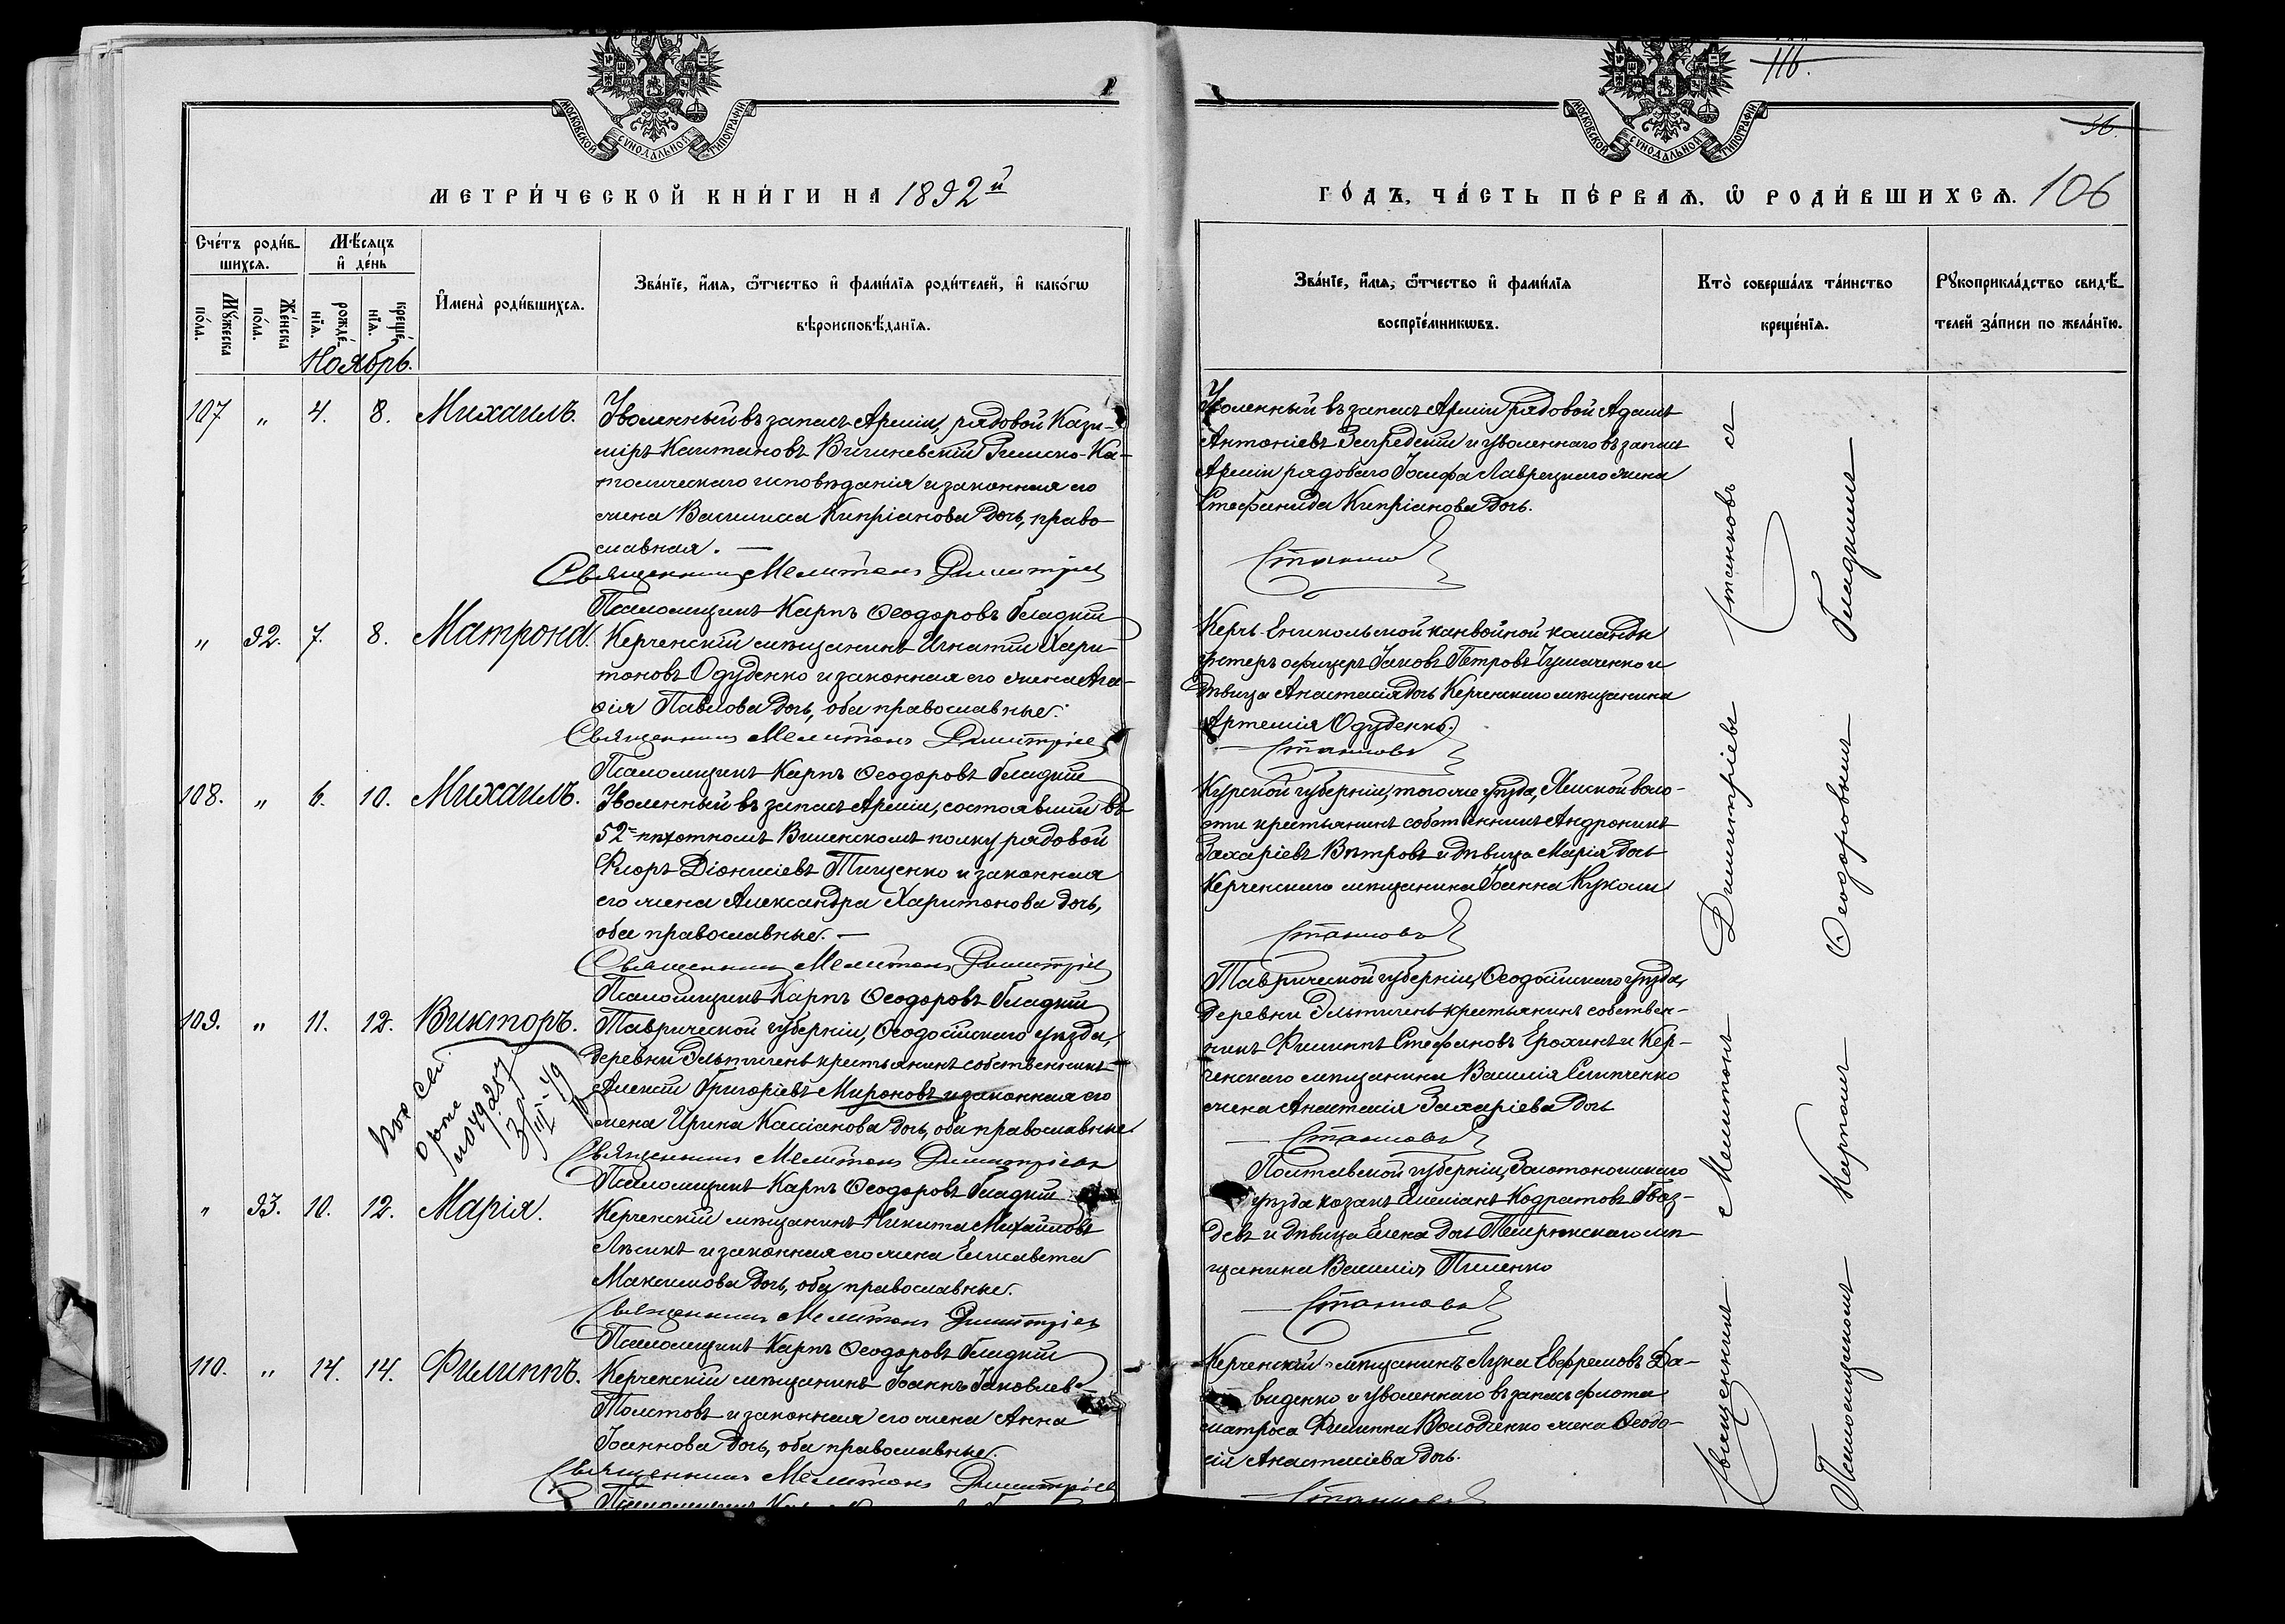 МОСКОВСКОЙ СѴНОДАЛЬНОЙ ТИПОГРАФІИ
МЕТРИ́ЧЕСКОЙ КНИ́ГИ НА 1892й
Сче́тъ роди́в-
шихсѧ.
Мѣ́сѧцъ
и҆ де́нь
Мꙋ́жеска
по́ла.
Же́нска
по́ла.
рожде́-
нїѧ.
креще́-
нїѧ.
И҆мена̀ роди́вшихсѧ.
Зва́нїе, и҆́мѧ, ѻ҆́тчество и҆ фами́лїѧ роди́телей, и҆ како́гѡ
вѣроисповѣ́данїѧ.
Ноябрь.
107 " 4. 8. Михаилъ.
Уволенный въ запасъ Арміи, рядовой Кази-
міръ Каитановъ Вишневскій Римско-Ка-
толическаго исповѣданія и законная его
жена Василиса Кипріанова дочь, право-
славная. —
Священникъ Мелитонъ Димитріевъ
Псаломщикъ Карпъ Ѳеодоровъ Гладкій
" 92. 7. 8. Матрона.
Керченскій мѣщанинъ Игнатій Хари-
тоновъ Одуденко и законная его жена Ага-
ѳія Павлова дочь, оба православные.
Священникъ Мелитонъ Димитріевъ
Псаломщикъ Карпъ Ѳеодоровъ Гладкій
108. " 6. 10. Михаилъ.
Уволенный въ запасъ Арміи, состоявшій въ
52= пѣхотномъ Виленскомъ полку рядовой
Флоръ Діонисіевъ Тищенко и законная
его жена Александра Харитонова дочь,
оба православные. —
Священникъ Мелитонъ Димитріевъ
Псаломщикъ Карпъ Ѳеодоровъ Гладкій
109. " 11. 12. Викторъ.
Таврической губерніи, Ѳеодосійскаго уѣзда,
деревни Эльтигенъ крестьянинъ собственникъ
Алексій Григоріевъ Мироновъ и законная его
жена Ирина Кассіанова дочь, оба православные
Священникъ Мелитонъ Димитріевъ
Псаломщикъ Карпъ Ѳеодоровъ Гладкій
" 93. 10. 12. Марія.
Керченскій мѣщанинъ Никита Михайловъ
Лѣсинъ и законная его жена Елисавета
Максимова дочь, оба православные.
Священникъ Мелитонъ Димитріевъ
Псаломщикъ Карпъ Ѳеодоровъ Гладкій
110. " 14. 14. Филиппъ.
Керченскій мѣщанинъ Іоаннъ Іаковлевъ
Толстовъ и законная его жена Анна
Іоаннова дочь, оба православные.
Священникъ Мелитонъ Димитріевъ
116.
36.
МОСКОВСКОЙ СѴНОДАЛЬНОЙ ТИПОГРАФІИ
ГО́ДЪ, ЧА́СТЬ ПЕ́РВАѦ, Ѽ РОДИ́ВШИХСѦ. 106
Зва́нїе, и҆́мѧ, ѻ҆́тчество и҆ фами́лїѧ
воспрїе́мникѡвъ.
Кто̀ соверша́лъ та́инство
креще́нїѧ.
Рꙋкоприкла́дство свидѣ́-
телей за́писи по жела́нїю.
Уволенный въ запасъ Арміи рядовой Адамъ
Антоніевъ и уволеннаго въ запасъ
Арміи рядоваго Іосифа Лаврецкаго жена
Стефанида Кипріанова дочь.
Станковъ
Керчь-Еникольской конвойной команды
унтеръ офицеръ Іаковъ Петровъ Чумаченко и
дѣвица Анастасія дочь Керченскаго мѣщанина
Артемія Одуденко.
Станковъ
Курской губерніи, того же уѣзда, Ямской воло-
сти крестьянинъ собственникъ Андроникъ
Захаріевъ Вѣтровъ и дѣвица Марія дочь
Керченскаго мѣщанина Іоанна
Станковъ
Таврической губерніи, Ѳеодосійскаго уѣзда,
деревни Эльтигенъ крестьянинъ собствен-
никъ Филиппъ Стефановъ Ерохинъ и Кер-
ченскаго мѣщанина Василія
жена Анастасія Захаріева дочь
Станковъ
Полтавской губерніи, Золотоношскаго
уѣзда козакъ Емеліанъ Кодратовъ Гвоз-
девъ и дѣвица Елена дочь Темрюкскаго мѣ-
щанина Василія Пиленко
Станковъ
Керченскій мѣщанинъ Лука Евфремовъ Да-
виденко и уволеннаго въ запасъ флота
матроса Филиппа Володченко жена Ѳеодо-
сія Анастасіева дочь.
Станковъ
Священникъ Мелитонъ Димитріевъ Станковъ съ
Псаломщикомъ Карпомъ Ѳеодоровымъ Гладкимъ